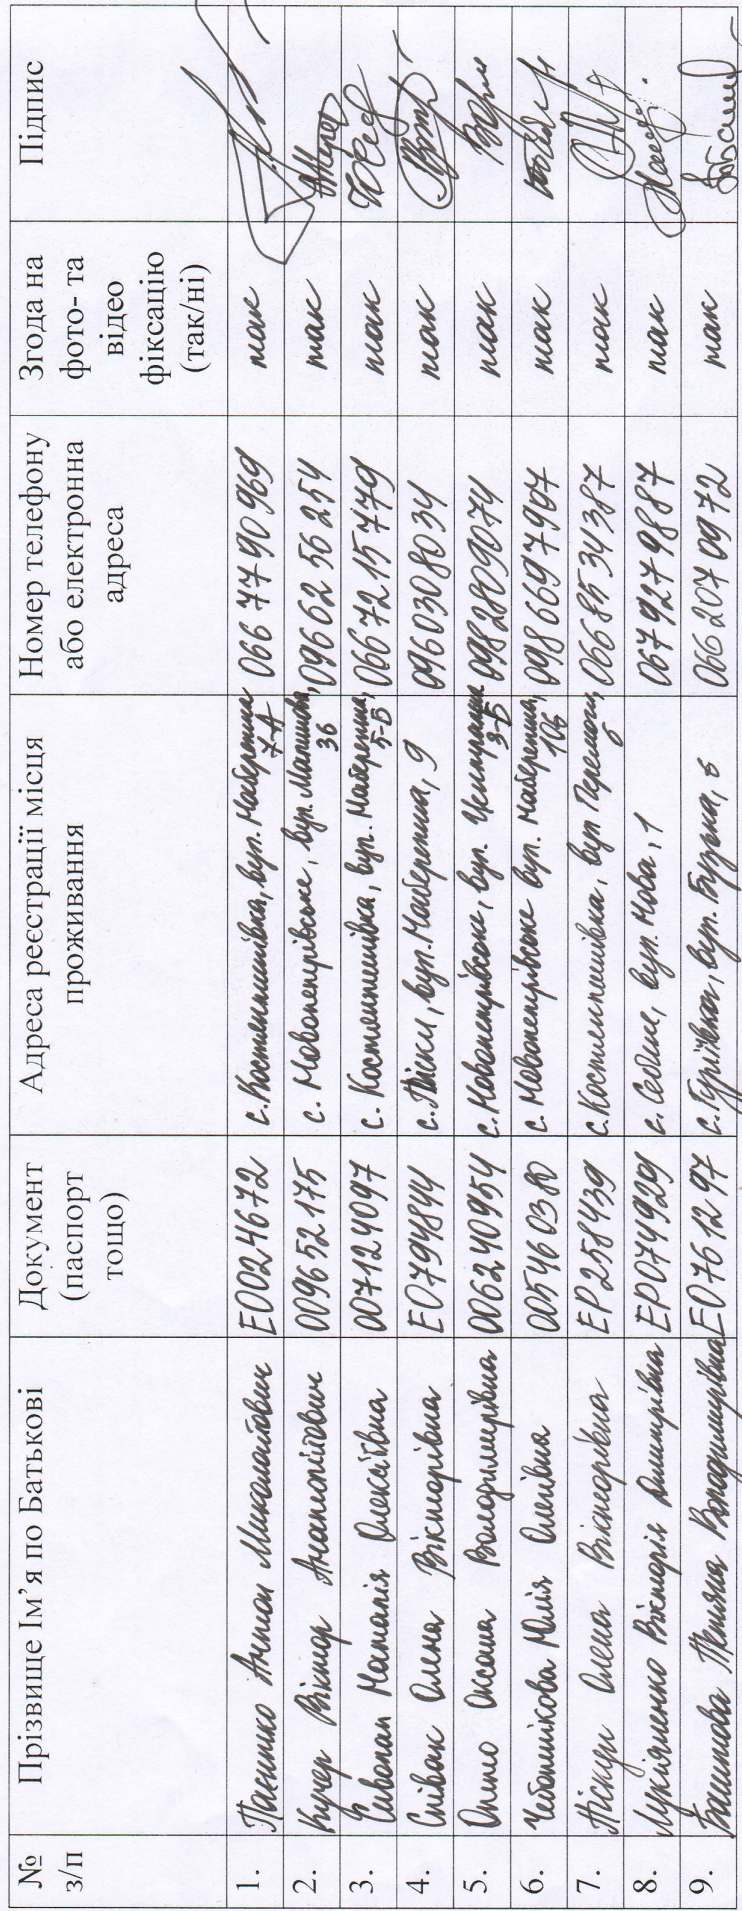 № з/п
Прізвище Ім’я по Батькові
Документ
(паспорт
тощо)
Адреса реєстрації місця
проживання
Номер телефону
або електронна
адреса
Згода на
фото- та
відео
фіксацію
(так/ні)
Підпис
1. Антон Миколайович ЕО024672 с. Костянтинівка, вул. Набережна 7-А 0667790969 так
2. Кучер Віктор Анатолійович 009652175 с. Новопетрівське, вул. 36 0966256254 так
3. Наталія Олексіївна 007124097 с. Костянтинівка, вул. Набережна, 5-В 0667215779 так
4. Співак Олена Вікторівна ЕО794844 с. Піски, вул. Набережна, 9 0960308034 так
5. Оксана Володимирівна 006240954 с. Новопетрівське, вул. Центральна 3-Б 0982809074 так
6. Чеботнікова Юлія Оленівна 005460380 с. Новопетрівське вул. Набережна, 106 0986697967 так
7. Олена Вікторівна ЕР258439 с. Костянтинівка, вул Перемоги, 6 0668534387 так
8. Лук'яненко Вікторія Дмитрівна ЕР074929 с. вул. Нова, 1 0679279887 так
9. Тетяна Володимирівна ЕО761297 с. Гур'ївка, вул. Бузька, 0662070972 так